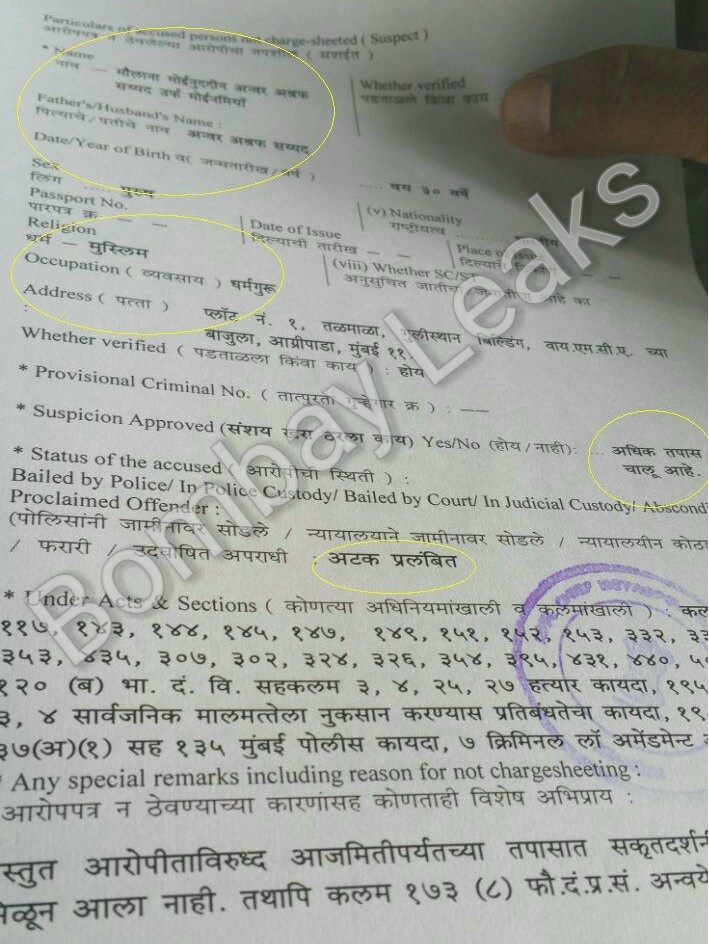 Particulars of accused persons not charge-sheeted ( Suspect )
आरोपपत्र न ठेवलेल्या आरोपीचा तपशील ( संशईत )
* Name
नाव — मौलाना मोईनुददीन अन्वर अश्रफ
सय्यद उर्फ मोईनमियाँ
Whether verified
पडताळले किंवा काय
Father's/Husband's Name :
पित्याचे / पतीचे नाव अन्वर अश्रफ सय्यद
Date/Year of Birth व ( जन्मतारीख / वर्ष )
.... वय ३० वर्षे
Sex
लिंग ........ पुरुष
(v) Nationality
राष्ट्रीयत्व
Passport No.
पारपत्र क्र — —
Date of Issue
दिल्याची तारीख — —
Place of
दिल्याचे
Religion
धर्म — मुस्लिम
(viii) Whether SC/ST
अनुसुचित जातीचा आहे का
Occupation ( व्यवसाय ) धर्मगुरू
Address ( पत्ता )
:
प्लॉट नं. १, तळमाळा, गुलीस्थान बिल्डिंग, वाय.एम.सी.ए. च्या
बाजुला, आग्रीपाडा, मुंबई ११.
Whether verified ( पडताळला किंवा काय ) : होय
* Provisional Criminal No. ( तात्पुरता गुन्हेगार क्र ) : ——
* Suspicion Approved (संशय खरा ठरला काय) Yes/No (होय / नाही): ... अधिक तपास
चालू आहे.
* Status of the accused ( आरोपीचा स्थिती ) :
Bailed by Police/ In Police Custody/ Bailed by Court/ In Judicial Custody/ Abscondi
Proclaimed Offender :
(पोलिसांनी जामीनावर सोडले / न्यायालयाने जामीनावर सोडले / न्यायालयीन कोठड
/ फरारी / उदघोषित अपराधी : अटक प्रलंबित
* Under Acts & Sections ( कोणत्या अधिनियमांखाली व कलमांखाली ) : कल
११७, १४३, १४४, १४५, १४७, १४९, १५१, १५२, १५३, ३३२, ३३
३५३, ४३५, ३०७, ३०२, ३२४, ३२६, ३५४, ३९५, ४३१, ४४०, ५०
१२० (ब) भा. दं. वि. सहकलम ३, ४, २५, २७ हत्यार कायदा, १९५
३, ४ सार्वजनिक मालमत्तेला नुकसान करण्यास प्रतिबंधतेचा कायदा, १९
३७(अ)(१) सह १३५ मुंबई पोलीस कायदा, ७ क्रिमिनल लॉ अमेंडमेन्ट
* Any special remarks including reason for not chargesheeting :
आरोपपत्र न ठेवण्याच्या कारणांसह कोणताही विशेष अभिप्राय :
स्तुत आरोपीताविरुध्द आजमितीपर्यतच्या तपासात सकृतदर्शनी
मेळून आला नाही. तथापि कलम १७३ (८) फौ.दं.प्र.सं. अन्वये
Bombay Leaks